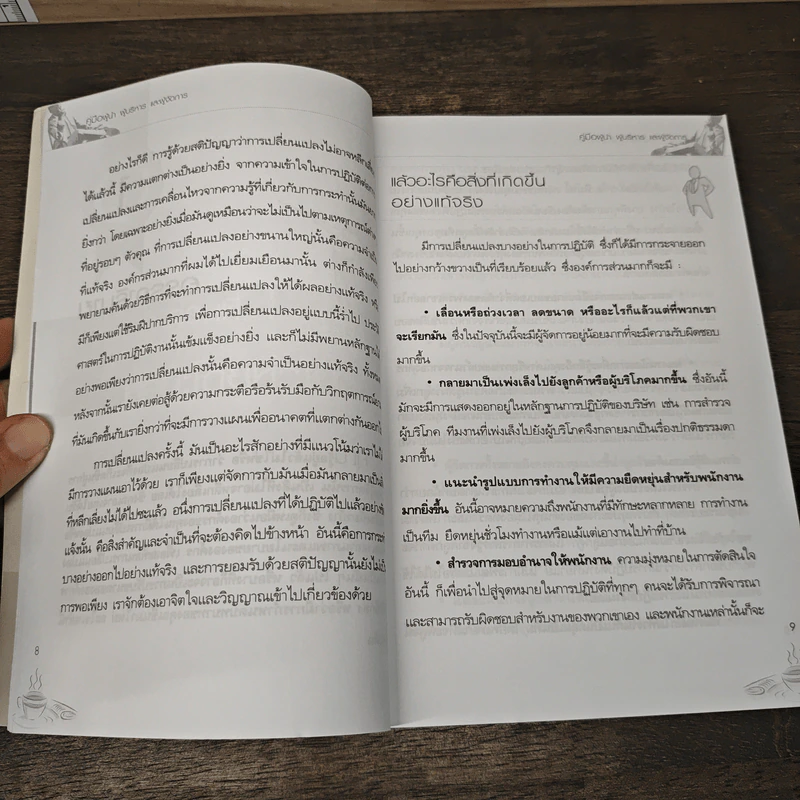 คู่มือผู้นำ ผู้บริหาร และผู้จัดการ
อย่างไรก็ดี การรู้ด้วยสติปัญญาว่าการเปลี่ยนแปลงไม่อาจหลีกเลี่ยง
ได้แล้วนี้ มีความแตกต่างเป็นอย่างยิ่ง จากความเข้าใจในการปฏิบัติต่อการ
เปลี่ยนแปลงและการเคลื่อนไหวจากความรู้ที่เกี่ยวกับการกระทำนั้นมัน
ยิ่งกว่า โดยเฉพาะอย่างยิ่งเมื่อมันดูเหมือนว่าจะไม่เป็นไปตามเหตุการณ์
ที่อยู่รอบๆ ตัวคุณ ที่การเปลี่ยนแปลงอย่างขนานใหญ่นั้นคือความจำเป็น
ที่แท้จริง องค์กรส่วนมากที่ผมได้ไปเยี่ยมเยือนมานั้น ต่างก็กำลังเพียร
พยายามค้นด้วยวิธีการที่จะทำการเปลี่ยนแปลงให้ได้ผลอย่างแท้จริง หรือ
มีก็เพียงแต่ใช้ริมฝีปากบริการ เพื่อการเปลี่ยนแปลงอยู่แบบนี้ร่ำไป
ศาสตร์ในการปฏิบัติงานนั้นเข้มแข็งอย่างยิ่ง และก็ไม่มีพยานหลักฐาน
อย่างพอเพียงว่าการเปลี่ยนแปลงนั้นคือความจำเป็นอย่างแท้จริง
หลังจากนั้นเรายังเคยต่อสู้ด้วยความกระตือรือร้นรับมือกับวิกฤตการณ์
ที่มันเกิดขึ้นกับเรายิ่งกว่าที่จะมีการวางแผนเพื่ออนาคตที่แตกต่างกันออกไป
การเปลี่ยนแปลงครั้งนี้ มันเป็นอะไรสักอย่างที่มีแนวโน้มว่าเราไม่ได้
มีการวางแผนเอาไว้ด้วย เราก็เพียงแต่จัดการกับมันเมื่อมันกลายมาเป็น
ที่หลีกเลี่ยงไม่ได้ไปซะแล้ว อนึ่งการเปลี่ยนแปลงที่ได้ปฏิบัติไปแล้วอย่าง
แจ้งนั้น คือสิ่งสำคัญและจำเป็นที่จะต้องคิดไปข้างหน้า อันนี้คือการกระทำ
บางอย่างออกไปอย่างแท้จริง และการยอมรับด้วยสติปัญญานั้นยังไม่เป็น
การพอเพียง เราจักต้องเอาจิตใจและวิญญาณเข้าไปเกี่ยวข้องด้วย
8
คู่มือผู้นำ ผู้บริหาร และผู้จัดการ
แล้วอะไรคือสิ่งที่เกิดขึ้น
อย่างแท้จริง
มีการเปลี่ยนแปลงบางอย่างในการปฏิบัติ ซึ่งก็ได้มีการกระจายออก
ไปอย่างกว้างขวางเป็นที่เรียบร้อยแล้ว ซึ่งองค์การส่วนมากก็จะมี :
• เลื่อนหรือถ่วงเวลา ลดขนาด หรืออะไรก็แล้วแต่ที่พวกเขา
จะเรียกมัน ซึ่งในปัจจุบันนี้จะมีผู้จัดการอยู่น้อยมากที่จะมีความรับผิดชอบ
มากขึ้น
• กลายมาเป็นเพ่งเล็งไปยังลูกค้าหรือผู้บริโภคมากขึ้น ซึ่งอันนี้
มักจะมีการแสดงออกอยู่ในหลักฐานการปฏิบัติของบริษัท เช่น การสำรวจ
ผู้บริโภค ทีมงานที่เพ่งเล็งไปยังผู้บริโภคจึงกลายมาเป็นเรื่องปกติธรรมดา
มากขึ้น
• แนะนำรูปแบบการทำงานให้มีความยืดหยุ่นสำหรับพนักงาน
มากยิ่งขึ้น อันนี้อาจหมายความถึงพนักงานที่มีทักษะหลากหลาย การทำงาน
เป็นทีม ยืดหยุ่นชั่วโมงทำงานหรือแม้แต่เอางานไปทำที่บ้าน
• สำรวจการมอบอำนาจให้พนักงาน ความมุ่งหมายในการตัดสินใจ
อันนี้ ก็เพื่อนำไปสู่จุดหมายในการปฏิบัติที่ทุกๆ คนจะได้รับการพิจารณา
และสามารถรับผิดชอบสำหรับงานของพวกเขาเอง และพนักงานเหล่านั้นก็จะ
9